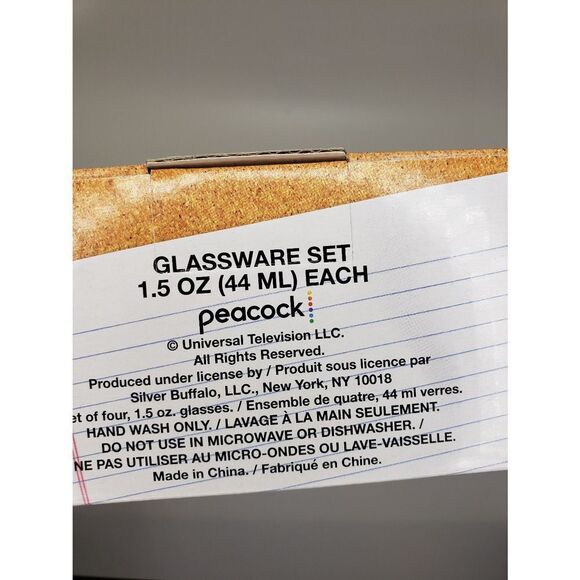 GLASSWARE SET
1.5 OZ (44 ML) EACH
peacock
© Universal Television LLC.
All Rights Reserved.
Produced under license by / Produit sous licence par
Silver Buffalo, LLC., New York, NY 10018
et of four, 1.5 oz. glasses. / Ensemble de quatre, 44 ml verres.
HAND WASH ONLY. / LAVAGE À LA MAIN SEULEMENT.
DO NOT USE IN MICROWAVE OR DISHWASHER. /
NE PAS UTILISER AU MICRO-ONDES OU LAVE-VAISSELLE.
Made in China. / Fabriqué en Chine.